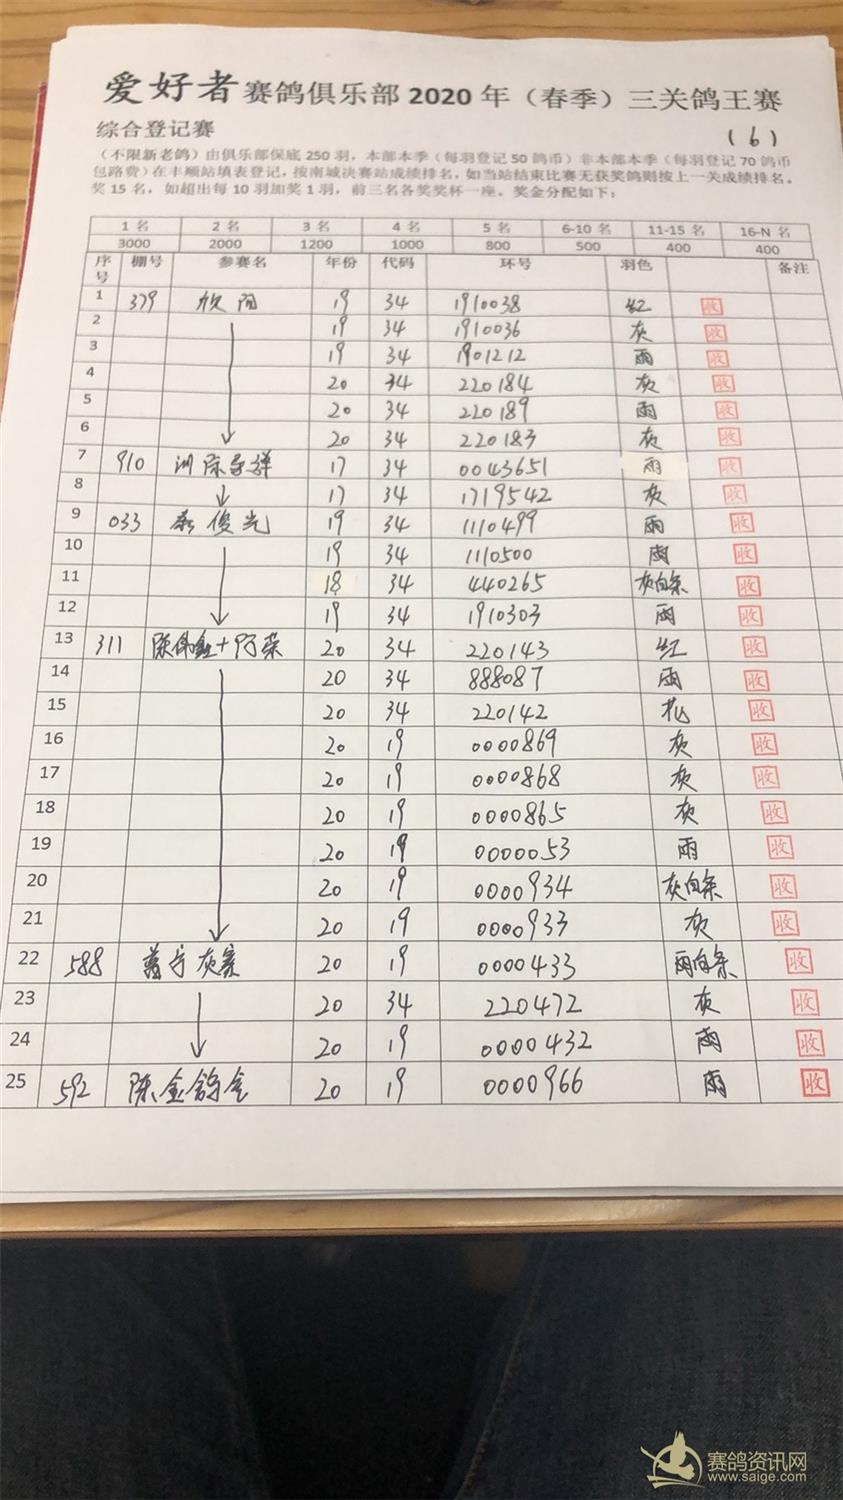 爱好者赛鸽俱乐部2020年（春季）三关鸽王赛
综合登记赛 (6)
（不限新老鸽）由俱乐部保底250羽，本部本季（每羽登记50鸽币）非本部本季（每羽登记70鸽币
包路费）在丰顺站填表登记，按南城决赛站成绩排名，如当站结束比赛无获奖鸽则按上一关成绩排名。
奖15名，如超出每10羽加奖1羽，前三名各奖奖杯一座。奖金分配如下：
1名 2名 3名 4名 5名 6-10名 11-15名 16-N名
3000 2000 1200 1000 800 500 400 400
序号 棚号 参赛名 年份 代码 环号 羽色 备注
1 379 欣阳 19 34 1910038 红 收
2 19 34 1910036 灰 收
3 19 34 1901212 雨 收
4 20 34 220184 灰 收
5 20 34 220189 雨 收
6 20 34 220183 灰 收
7 910 17 34 0043651 雨 收
8 17 34 1719542 灰 收
9 033 俊光 19 34 1110499 雨 收
10 19 34 1110500 雨 收
11 18 34 440265 灰白条 收
12 19 34 1910303 雨 收
13 311 陈伟鑫+阿荣 20 34 220143 红 收
14 20 34 888087 雨 收
15 20 34 220142 花 收
16 20 19 0000869 灰 收
17 20 19 0000868 灰 收
18 20 19 0000865 灰 收
19 20 19 0000053 雨 收
20 20 19 0000934 灰白条 收
21 20 19 0000933 灰 收
22 588 20 19 0000433 雨白条 收
23 20 34 220472 灰 收
24 20 19 0000432 雨 收
25 592 陈金鸽舍 20 19 0000966 雨 收
赛鸽资讯网
www.saige.com